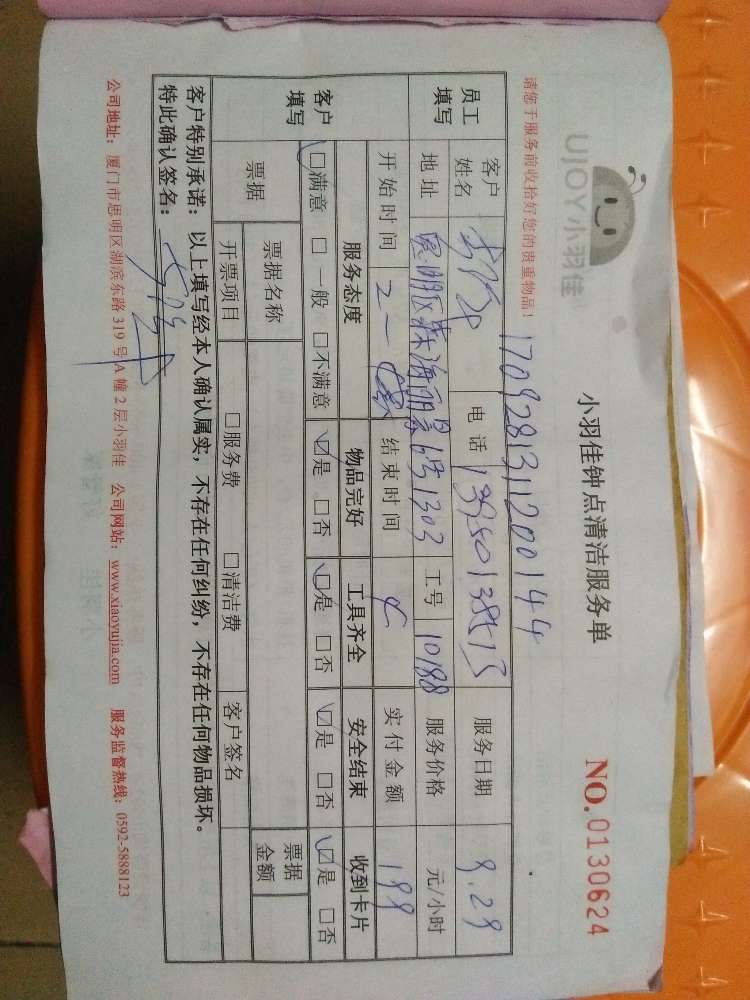 UJOY小羽佳
小羽佳钟点清洁服务单
NO.0130624
请您于服务前收拾好您的贵重物品！
1709281311200144
员工填写 客户姓名 电话 13950138513 服务日期 9.29
地址 思明区 海丽景 1303 工号 10188 服务价格 元/小时
开始时间 2 结束时间 实付金额 199
客户填写 服务态度 物品完好 工具齐全 安全结束 收到卡片
☑满意 □一般 □不满意 ☑是 □否 ☑是 □否 ☑是 □否 ☑是 □否
票据 票据名称 票据金额
开票项目 □服务费 □清洁费 客户签名
客户特别承诺：以上填写经本人确认属实，不存在任何纠纷，不存在任何物品损坏。
特此确认签名：
公司地址：厦门市思明区湖滨东路319号A幢2层小羽佳 公司网站：www.xiaoyujia.com 服务监督热线：0592-5888123